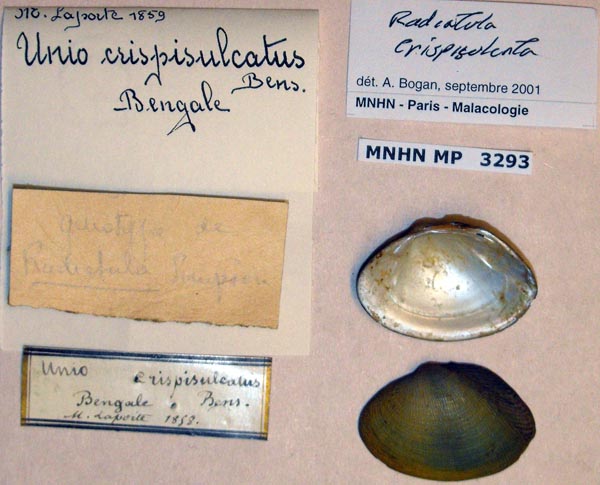 M. Laporte 1859
Unio crispisulcatus
Bens.
Bengale
Radiatula
crispisulcata
dét. A. Bogan, septembre 2001
MNHN - Paris - Malacologie
MNHN MP 3293
de
Radiatula Simpson
Unio crispisulcatus
Bengale. Bens.
M. Laporte 1858.